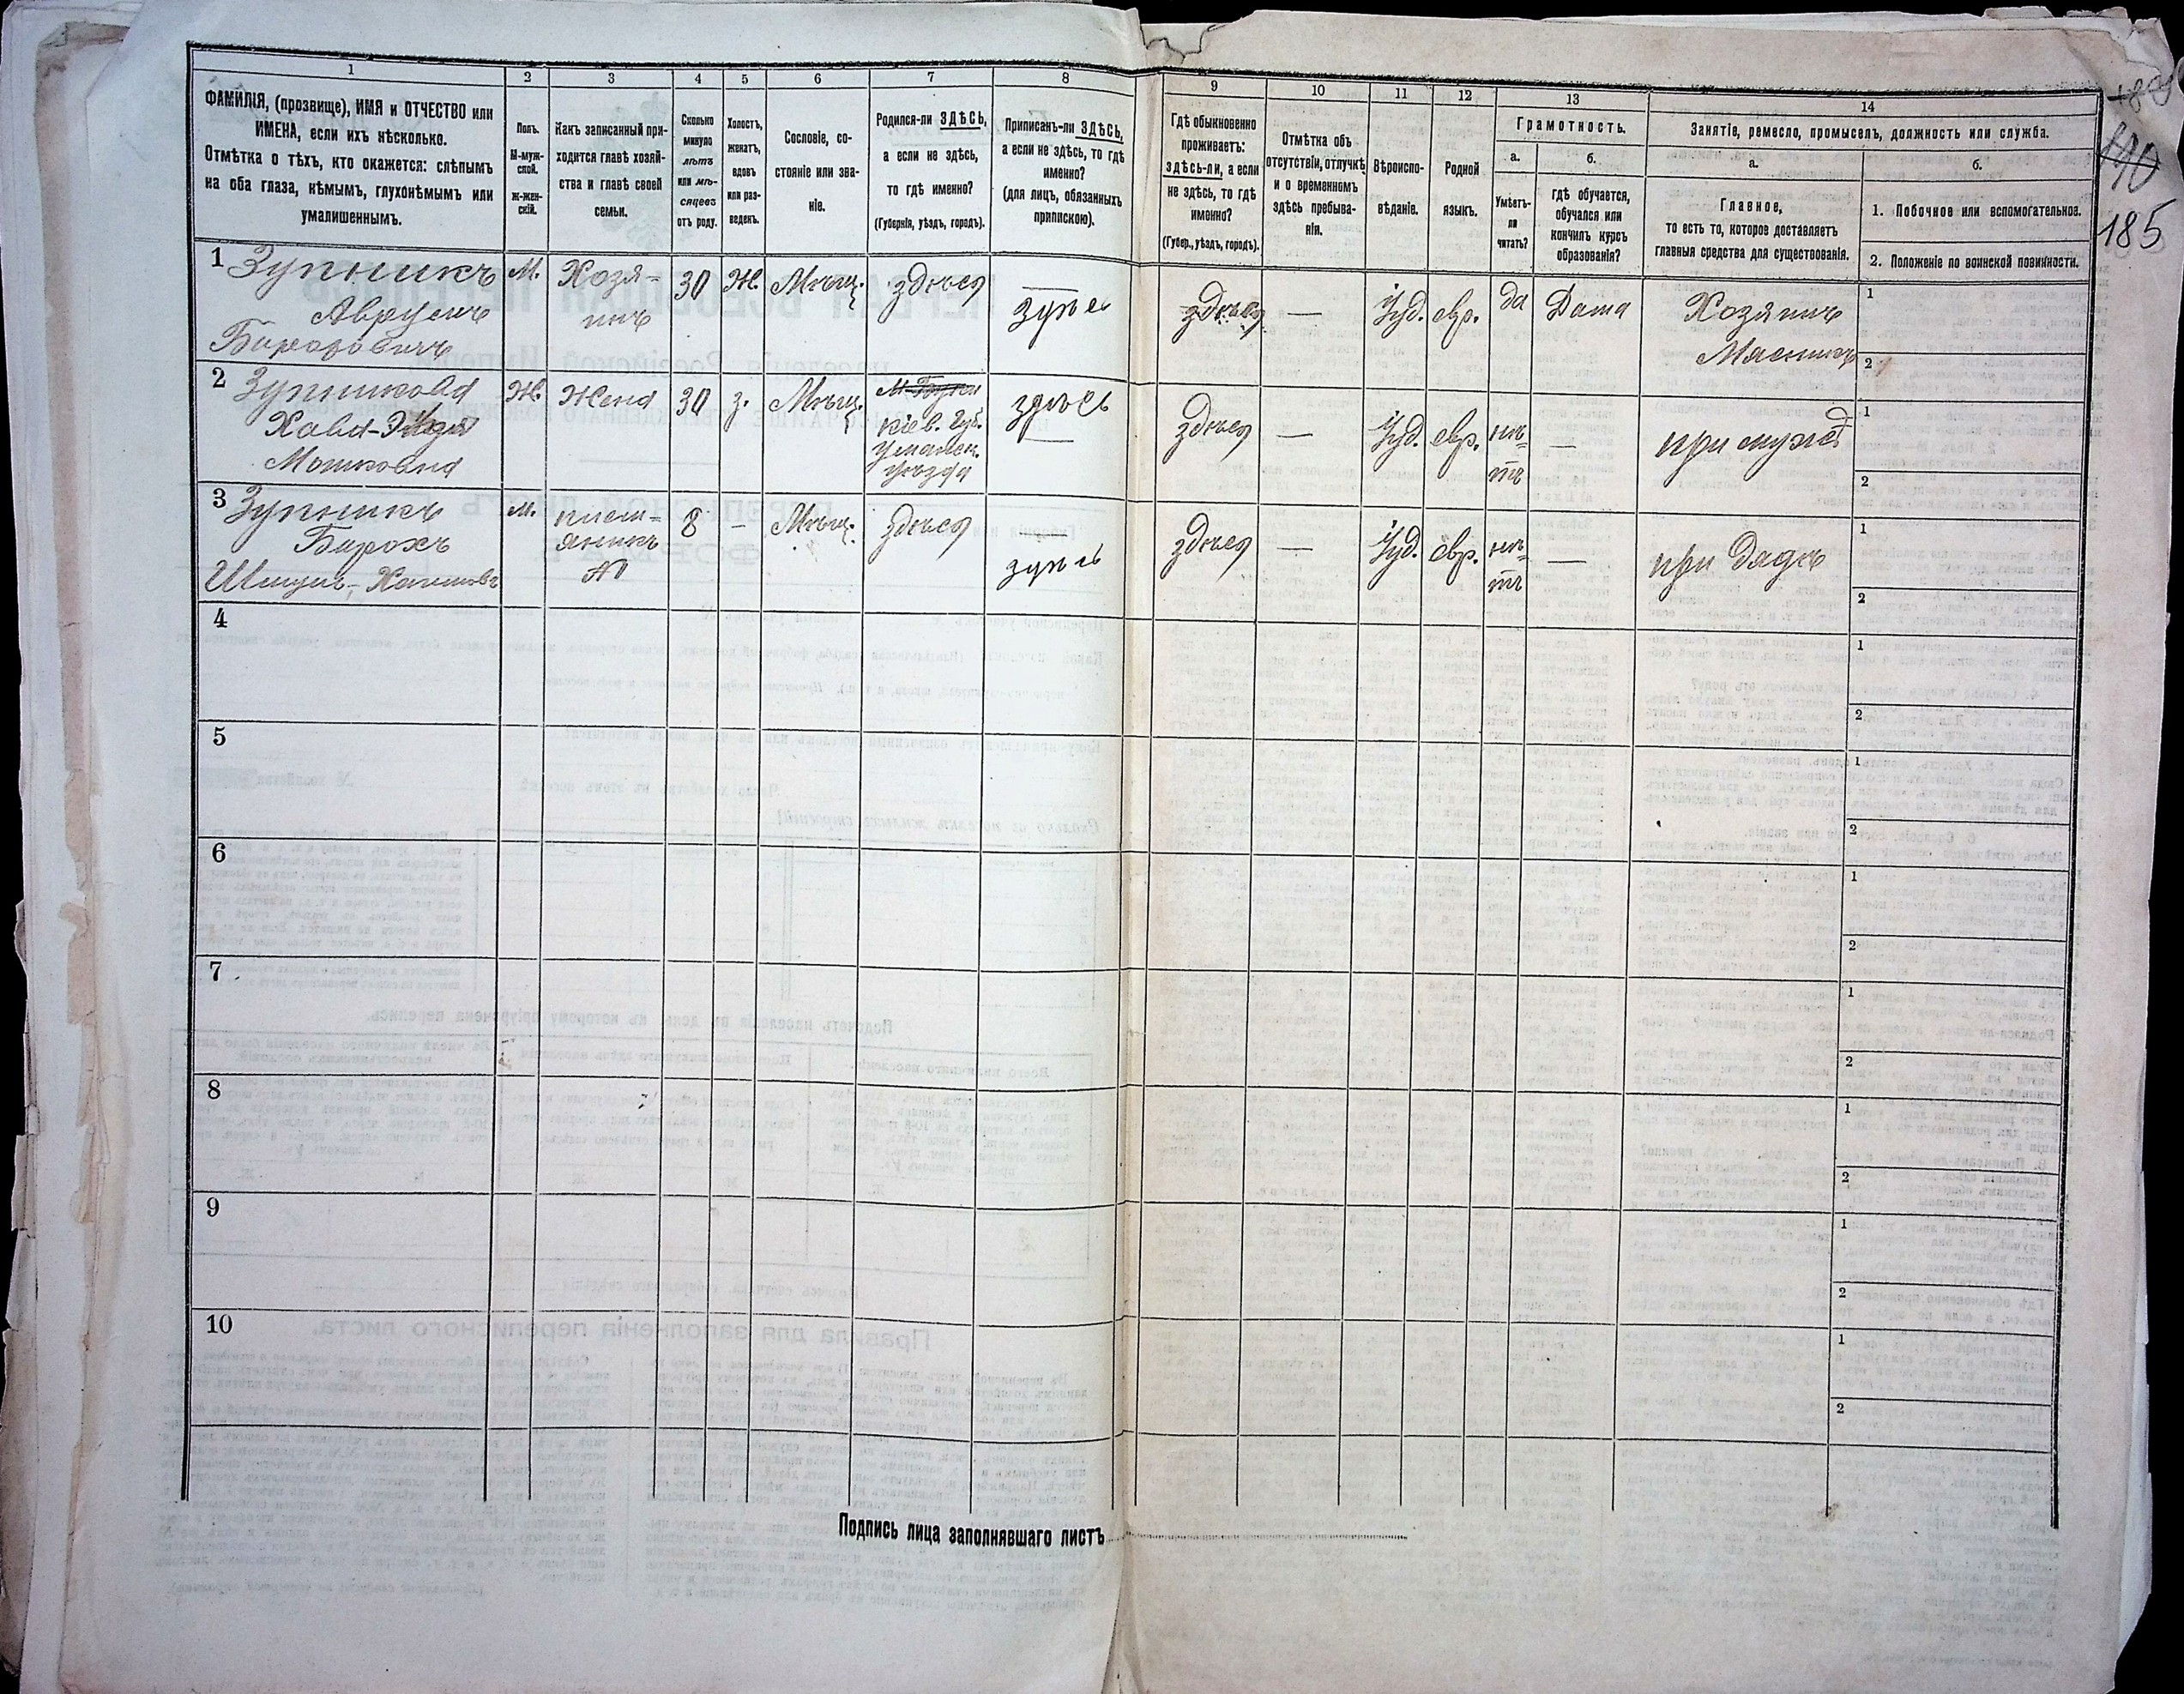 1 2 3 4 5 6 7 8 9 10 11 12 13 14
ФАМИЛІЯ, (прозвище), ИМЯ и ОТЧЕСТВО или
ИМЕНА, если ихъ нѣсколько.
Отмѣтка о тѣхъ, кто окажется: слѣпымъ
на оба глаза, нѣмымъ, глухонѣмымъ или
умалишеннымъ.
Полъ.
М-муж-
ской.
Ж-жен-
скій.
Какъ записанный при-
ходится главѣ хозяй-
ства и главѣ своей
семьи.
Сколько
минуло
лѣтъ
или мѣ-
сяцевъ
отъ роду.
Холостъ,
женатъ,
вдовъ
или раз-
веденъ.
Сословіе, со-
стояніе или зва-
ніе.
Родился-ли ЗДѢСЬ,
а если не здѣсь,
то гдѣ именно?
(Губернія, уѣздъ, городъ).
Приписанъ-ли ЗДѢСЬ,
а если не здѣсь, то гдѣ
именно?
(для лицъ, обязанныхъ
припискою).
Гдѣ обыкновенно
проживаетъ:
здѣсь-ли, а если
не здѣсь, то гдѣ
именно?
(Губер., уѣздъ, городъ).
Отмѣтка объ
отсутствіи, отлучкѣ
и о временномъ
здѣсь пребыва-
ніи.
Вѣроиспо-
вѣданіе.
Родной
языкъ.
Грамотность.
а.
Умѣетъ-
ли
читать?
б.
гдѣ обучается,
обучался или
кончилъ курсъ
образованія?
Занятіе, ремесло, промыселъ, должность или служба.
а.
Главное,
то есть то, которое доставляетъ
главныя средства для существованія.
б.
1. Побочное или вспомогательное.
2. Положеніе по воинской повинности.
185
1 Зупникъ
Аврумъ
Борохов­ичъ
М.
Хозя-
инъ
30
Ж.
Мѣщ.
здѣсь
здѣсь
—
Іуд.
евр.
да
Дома
Хозяинъ
Мясникъ
1
2
2 Зупникова
Хава-
Мошковна
Ж.
Жена
30
з.
Мѣщ.
Кіев. Губ.
Уманск.
уѣзда
здѣсь
здѣсь
—
Іуд.
евр.
нѣ=
тъ
—
при мужѣ
1
2
3 Зупникъ
Борохъ
М.
8
—
Мѣщ.
здѣсь
здѣсь
—
Іуд.
евр.
нѣ=
тъ
—
при дядѣ
1
2
4
1
2
5
1
2
6
1
2
7
1
2
8
1
2
9
1
2
10
1
2
Подпись лица заполнявшаго листъ